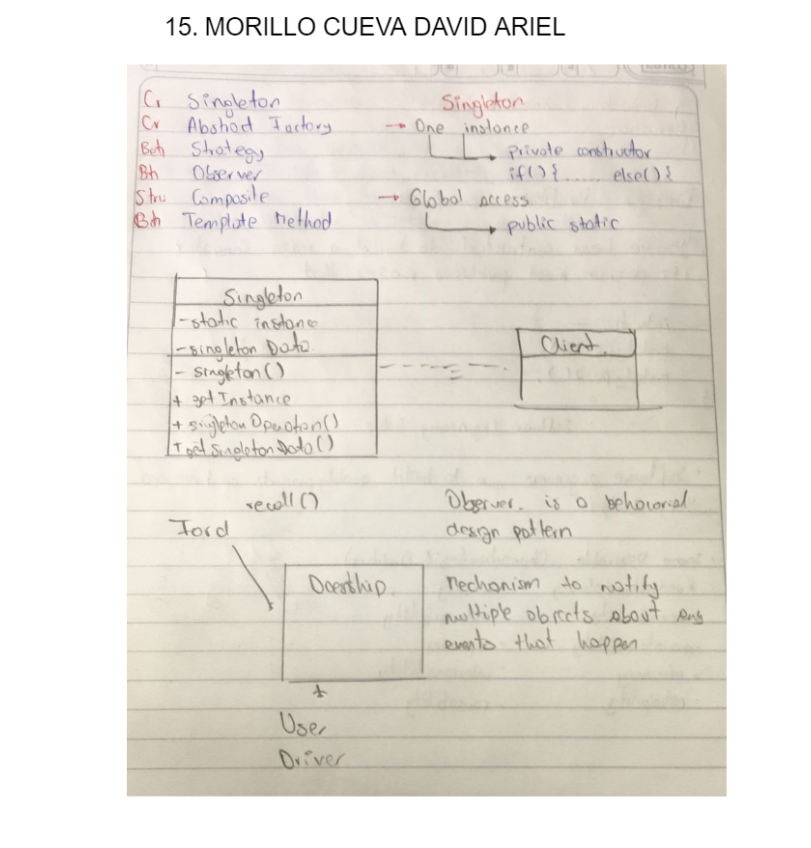 15. MORILLO CUEVA DAVID ARIEL
Cr Singleton
Cr Abstract Factory
Beh Strategy
Bh Observer
Stru Composite
Bh Template Method
Singleton
→ One instance
private constructor
if() {...... else() {
→ Global access
public static
Singleton
- static instance
- singleton Data
- singleton()
+ getInstance
+ singletonOperation()
+ getSingletonData()
Client.
recall()
Ford
User
Driver
Observer. is a behavioral
design pattern
Mechanism to notify
multiple objects about any
events that happen